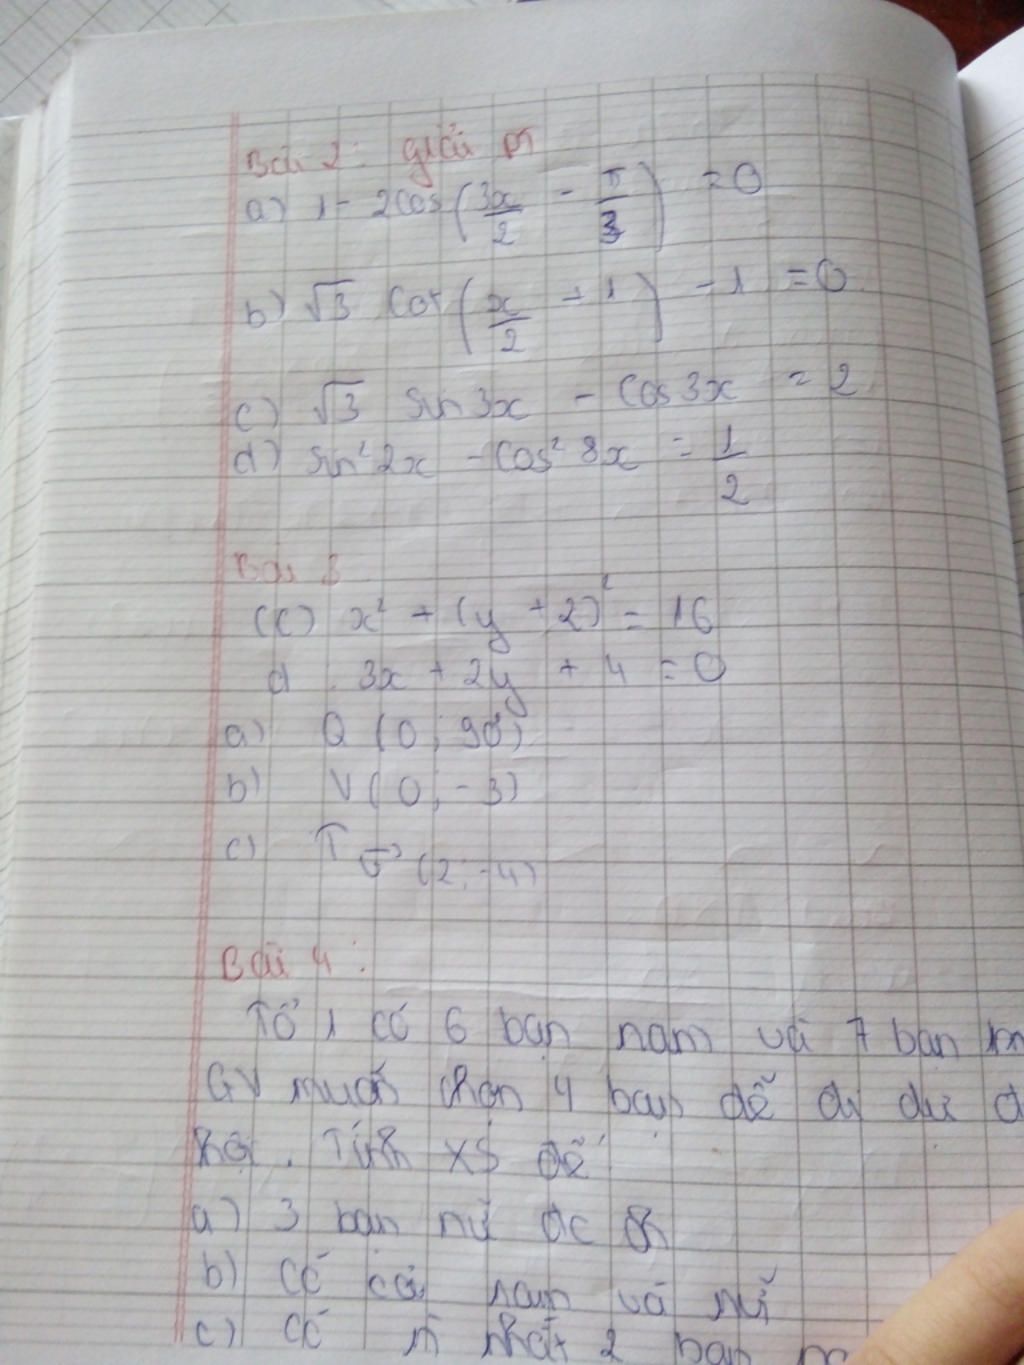 Bài 2: giải pt
a) 1 - 2cos(3x/2 - π/3) = 0
b) √3 cot(x/2 + 1) - 1 = 0
c) √3 sin 3x - cos 3x = 2
d) sin² 2x - cos² 8x = 1/2
Bài 3
(C) x² + (y + 2)² = 16
d 3x + 2y + 4 = 0
a) Q (O; 90°)
b) V (O; -3)
c) T v⃗ (2; -4)
Bài 4:
Tổ 1 có 6 bạn nam và 7 bạn
GV muốn chọn 4 bạn để đi dự
hội. Tính XS để
a) 3 bạn nữ đc ch
b) Có cả nam và nữ
c) Có ít nhất 2 bạn